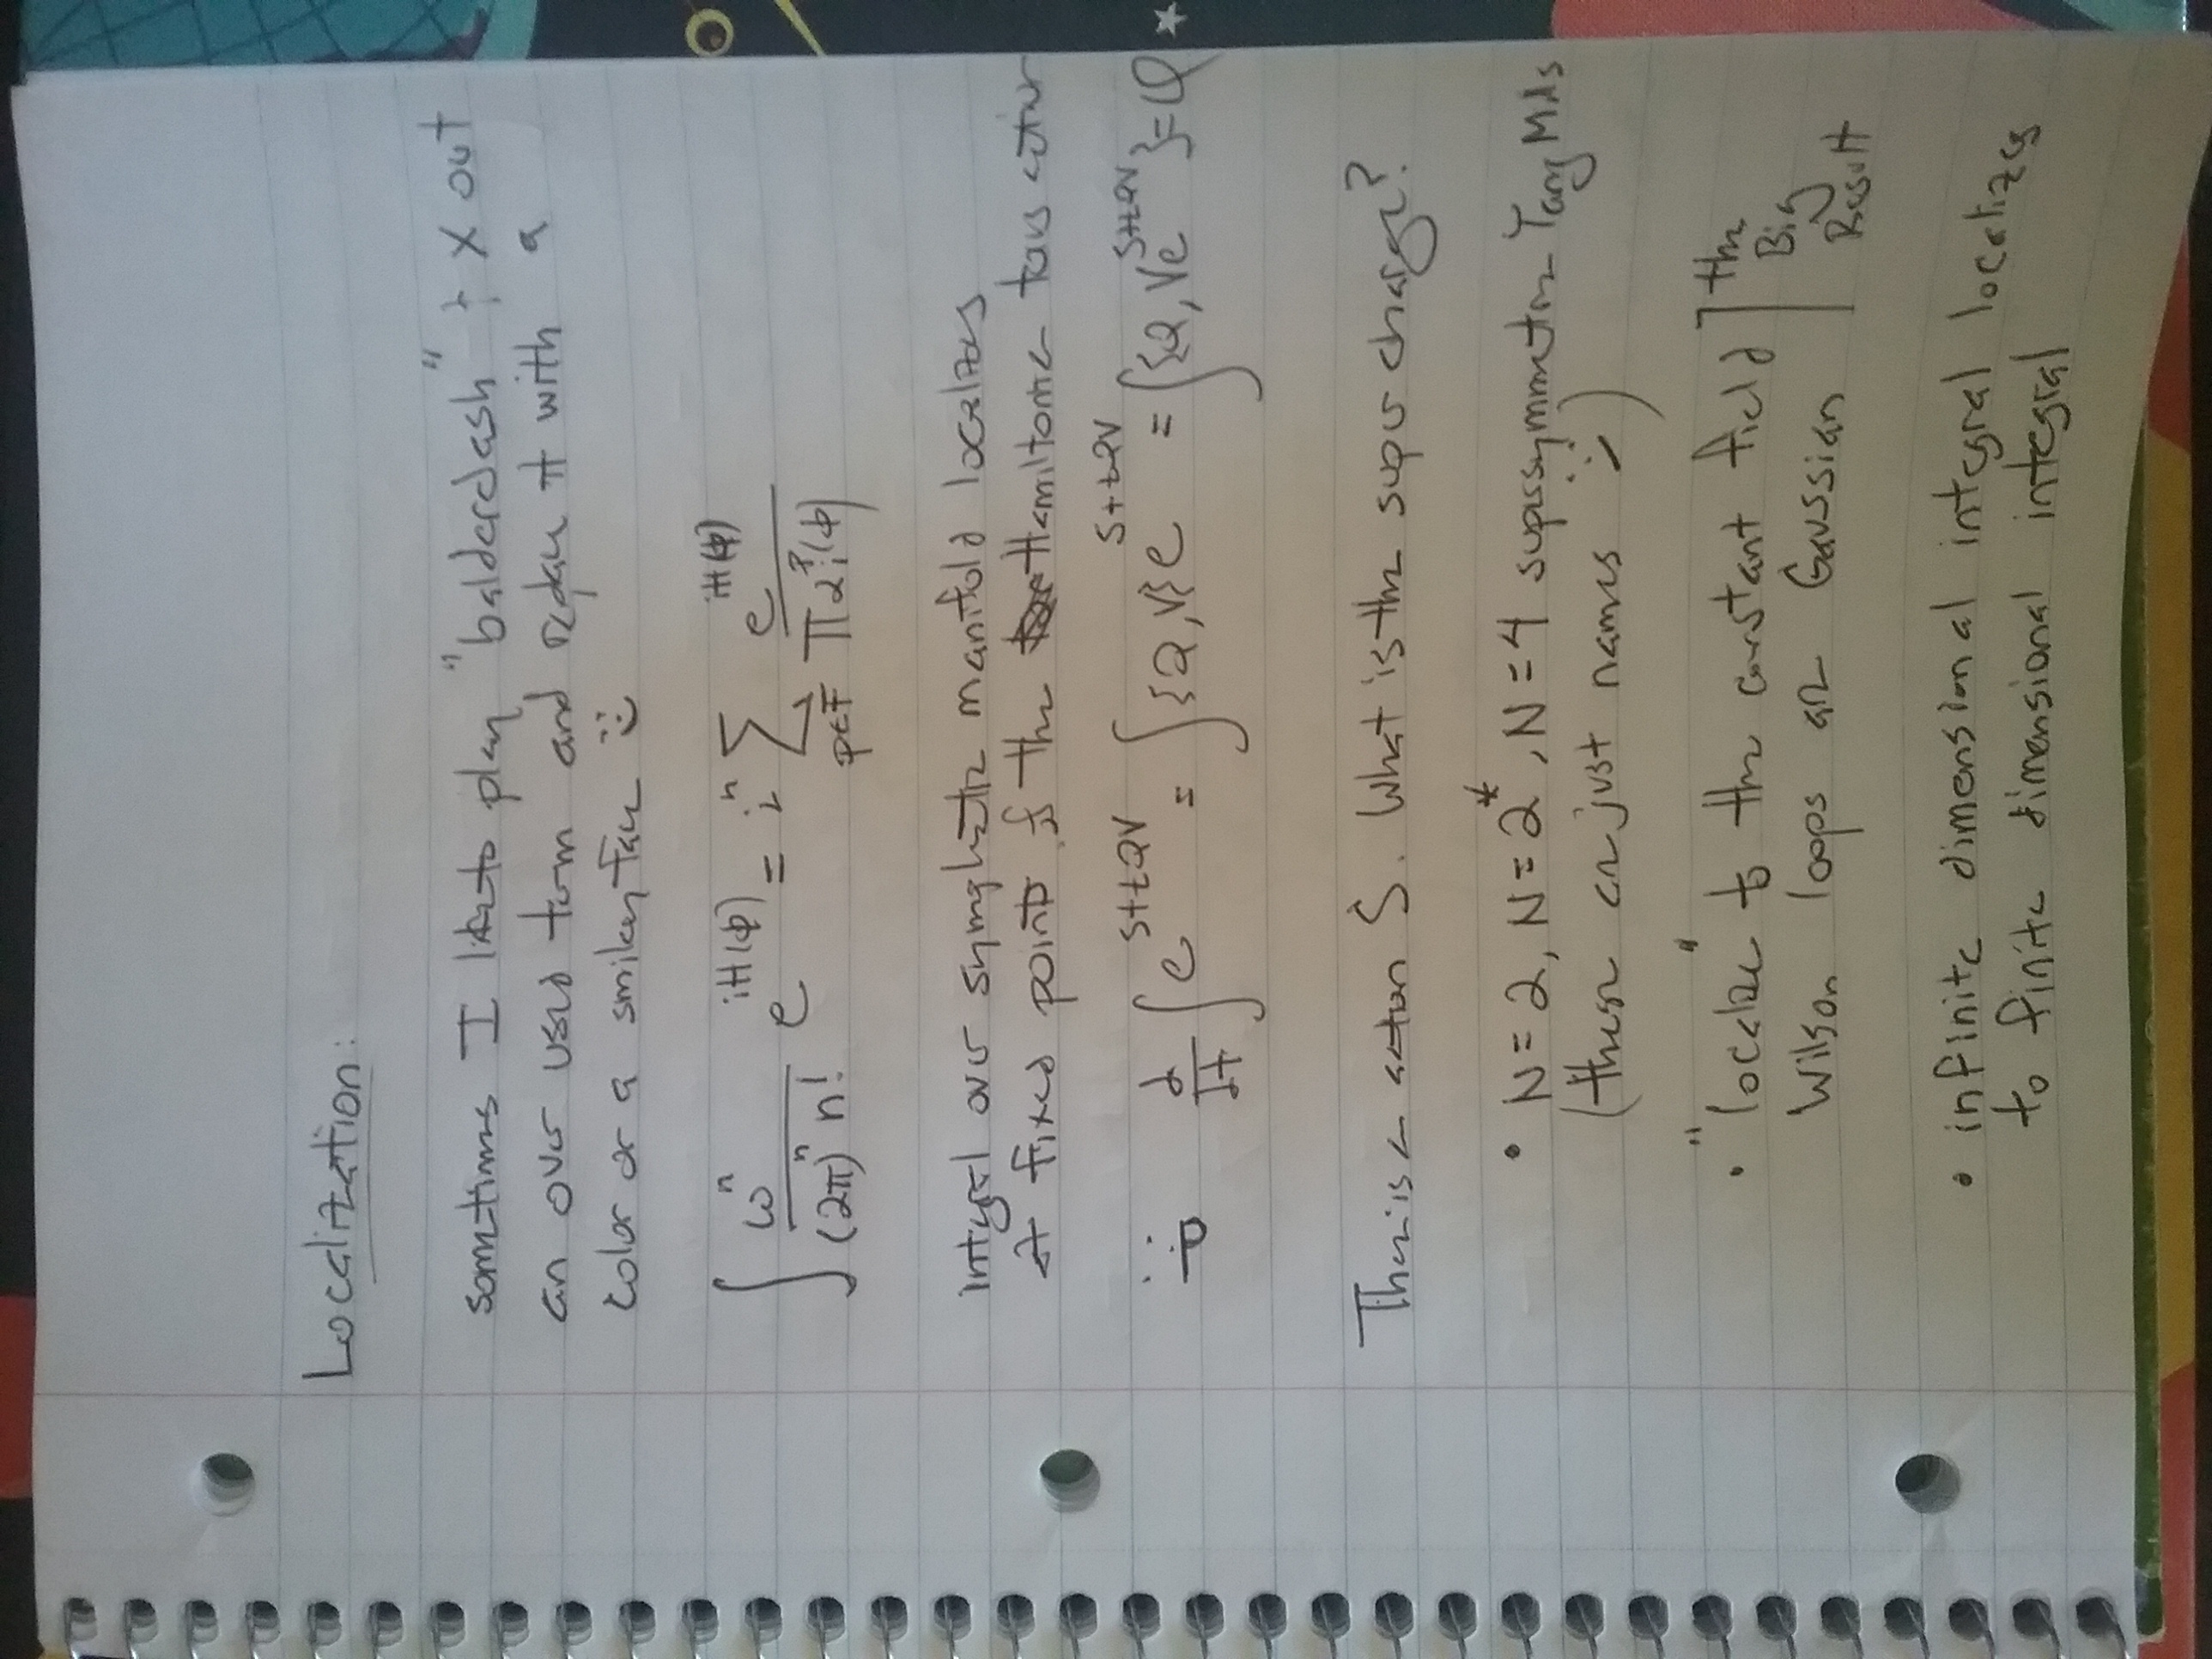 Localization:
sometimes I like to play "balderdash" & X out
an over used term and replace it with a
color or a smiley face :)
∫ ω^n / ((2π)^n n!) e^{iH(φ)} = i^n Σ_{p∈F} e^{iH(φ)} / Π α_i^p(φ)
integral over symplectic manifold localizes
at fixed points of the Hamiltonian torus action
d/dt ∫ e^{S+tQV} = ∫ {Q,V} e^{S+tQV} = ∫ {Q, V e^{S+tQV}} = φ
There is an action S. What is the super charge?
• N=2, N=2*, N=4 supersymmetric Yang Mills
(these are just names :))
• "localize" to the constant field ] the
Wilson loops are Gaussian Big
Result
• infinite dimensional integral localizes
to finite dimensional integral